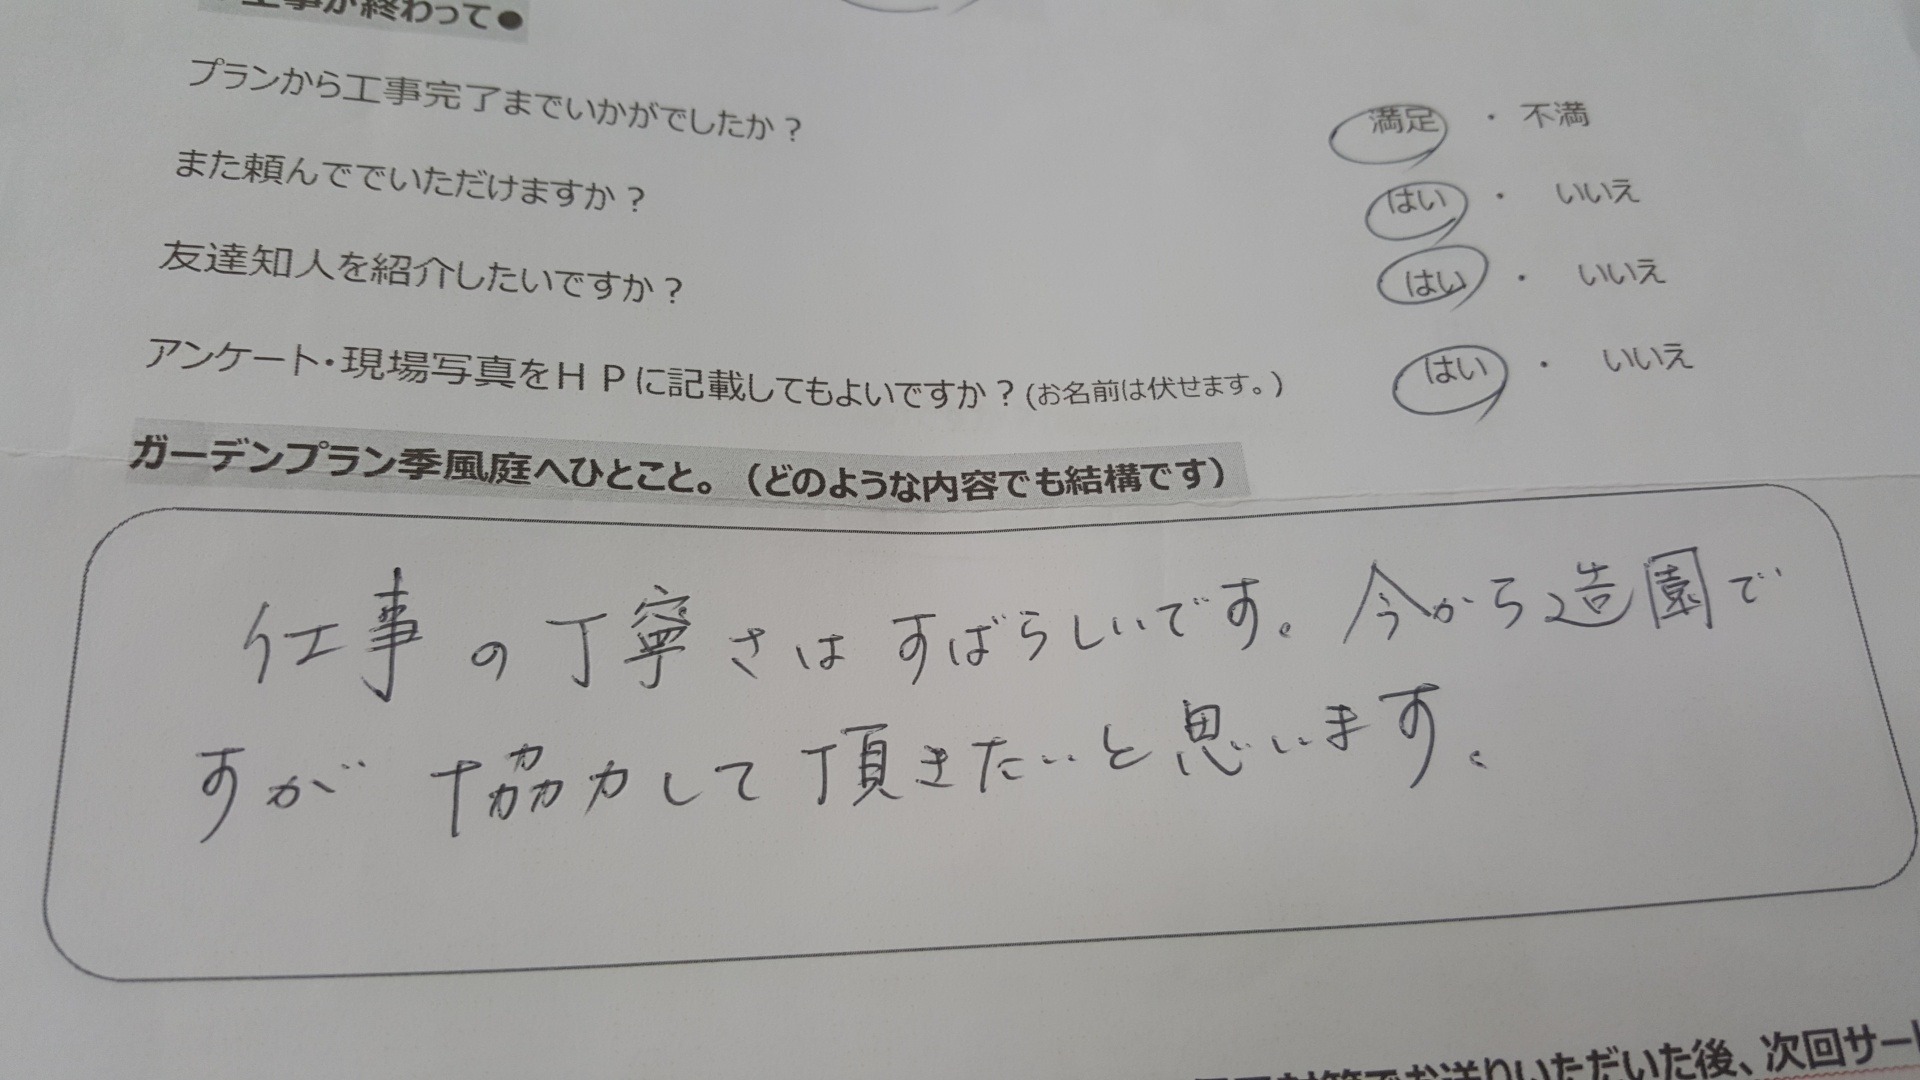 工事が終わって●
プランから工事完了までいかがでしたか？ 満足 ・ 不満
また頼んででいただけますか？ はい ・ いいえ
友達知人を紹介したいですか？ はい ・ いいえ
アンケート・現場写真をＨＰに記載してもよいですか？(お名前は伏せます。) はい ・ いいえ
ガーデンプラン季風庭へひとこと。（どのような内容でも結構です）
仕事の丁寧さはすばらしいです。今から造園で
すが協力して頂きたいと思います。
お送りいただいた後、次回サー